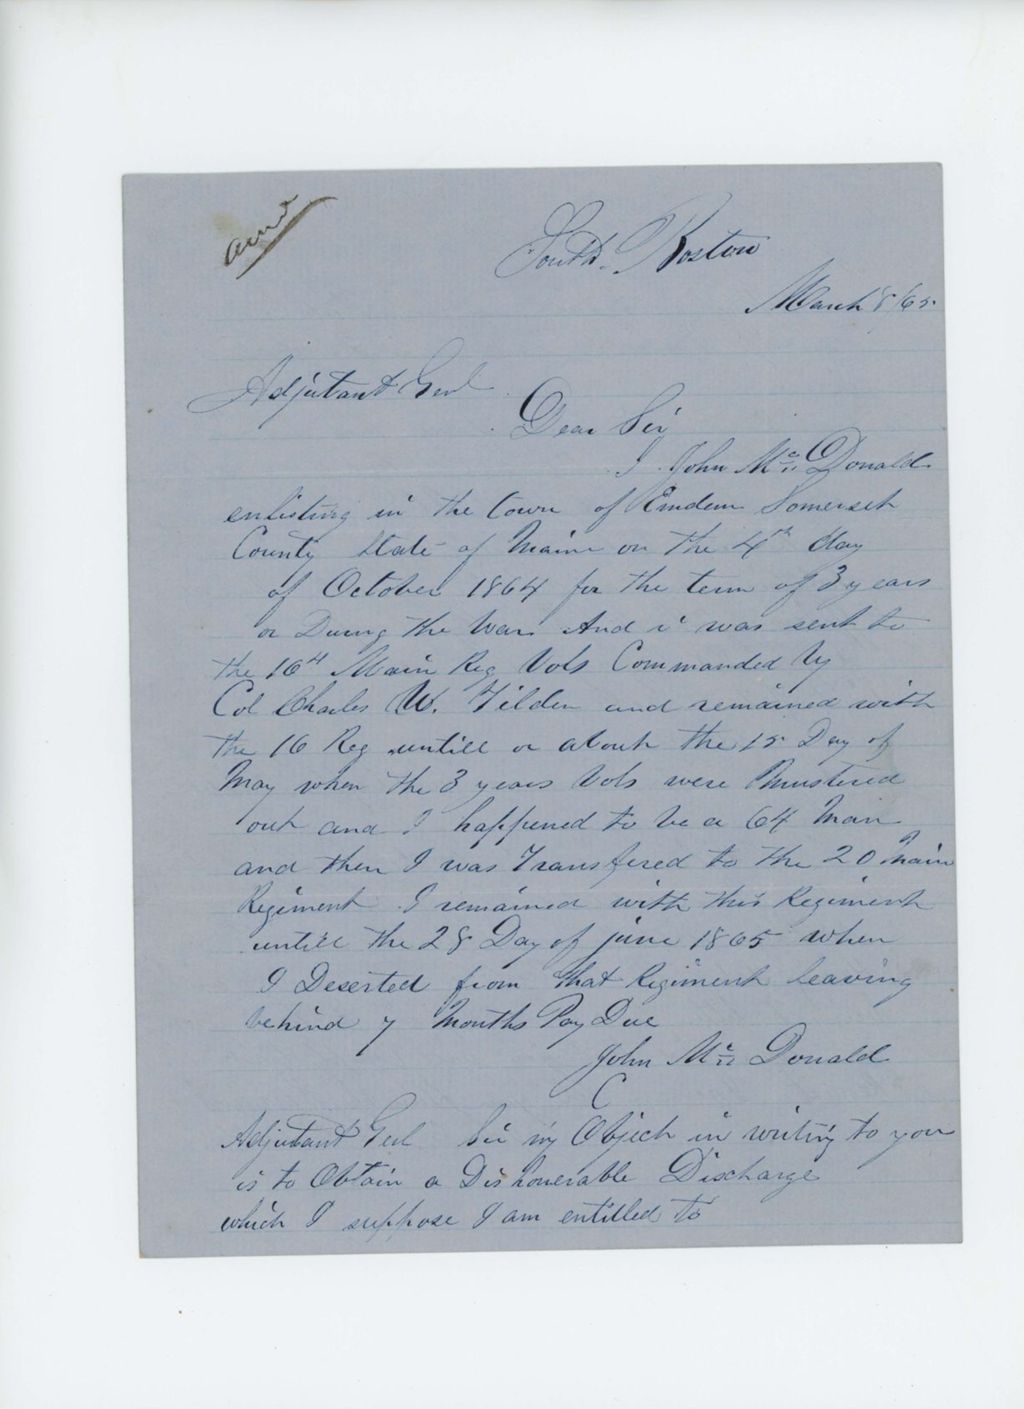 South Boston
March 8/65
Adjutant Genl
Dear Sir
I John Mc Donald
enlisting in the town of Emdem Somerset
County State of Maine on the 4th day
of October 1864 for the term of 3 years
or During the War. And i was sent to
the 16th Main Reg Vols Commanded by
Col Charles W. Tilden and remained with
the 16 Reg untill or about the 15 Day of
May when the 3 years Vols were Mustered
out and I happened to be a 64 Man
and then I was Transfered to the 20 Main
Regiment I remained with this Regiment
untill the 28 Day of june 1865 when
I Deserted from that Regiment leaving
behind 7 Months Pay Due
John Mc Donald
Adjutant Genl Sir my Object in writing to you
is to Obtain a Dishonerable Discharge
which I suppose I am entilled to